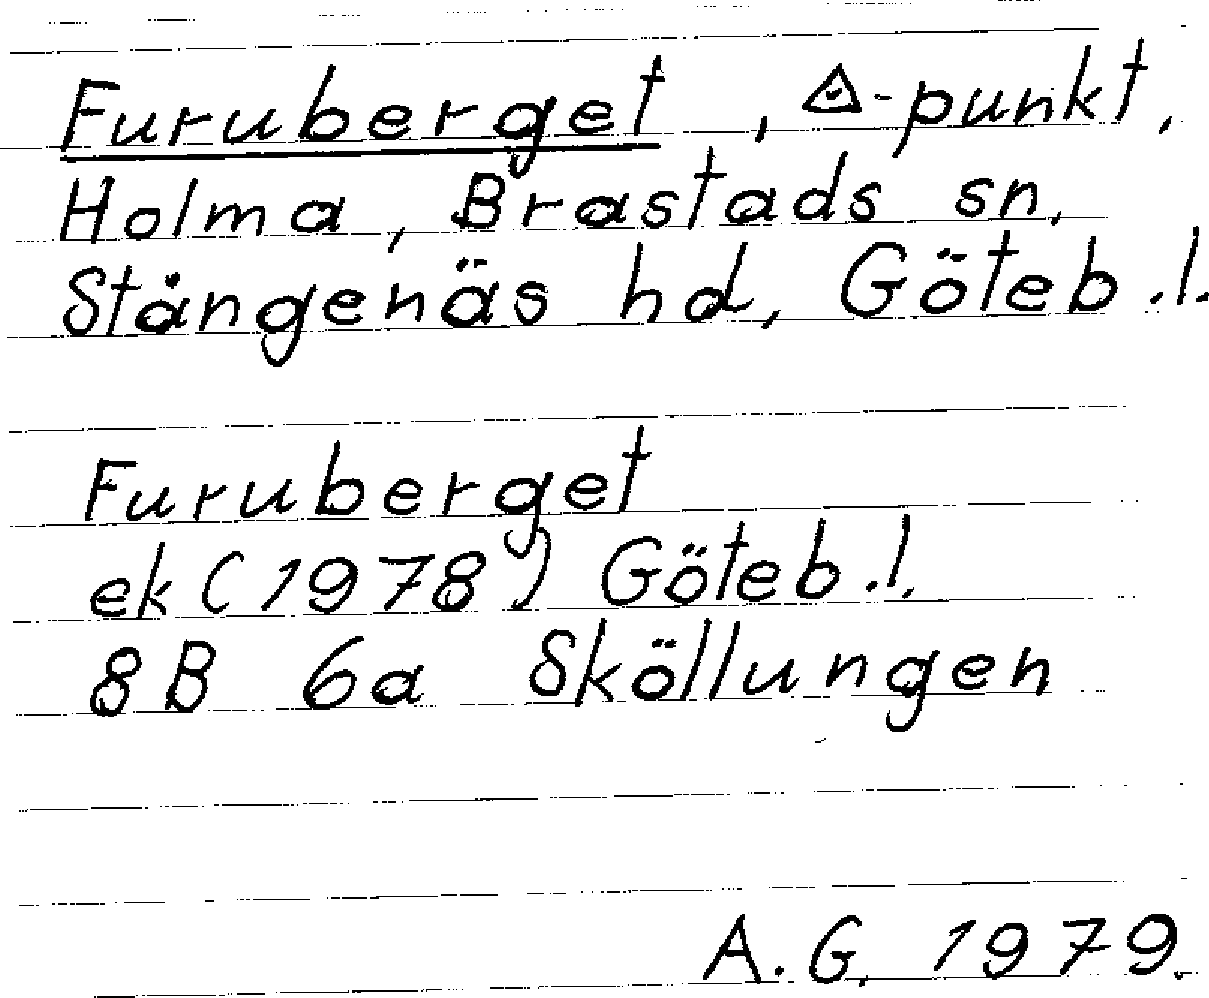 Furuberget, △-punkt,
Holma, Brastads sn,
Stångenäs hd, Göteb.l.
Furuberget
ek (1978) Göteb.l.
8B 6a Sköllungen
A.G. 1979.